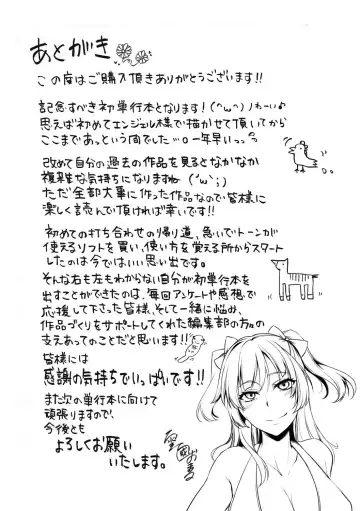 あとがき
この度はご購入頂きありがとうございます!!
記念すべき初単行本となります!(^ω^)わーい♪
思えば初めてエンジェル様で描かせて頂いてから
ここまであっという間でした…。一年早い…。
改めて自分の過去の作品を見るとなかなか
複雑な気持ちになりますね('ω`;)
ただ全部大事に作った作品なので皆様に
楽しく読んで頂ければ幸いです!!
初めての打ち合わせの帰り道、急いでトーンが
使えるソフトを買い、使い方を覚える所からスタート
したのは今ではいい思い出です。
そんな右も左もわからない自分が初単行本を
出すことができたのは、毎回アンケートや感想で
応援して下さった皆様、そして一緒に悩み、
作品づくりをサポートしてくれた編集部の方々の
支えあってのことだと思います!!
皆様には
感謝の気持ちでいっぱいです!!
また次の単行本に向けて
頑張りますので、
今後とも
よろしくお願い
いたします。